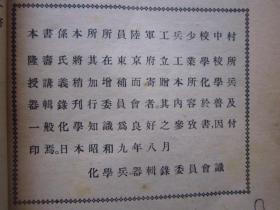 本書係本所所員陸軍工兵少校中村
隆壽氏將其在東京府立工業學校所
授講義稍加增補而寄贈本所化學兵
器輯錄刊行委員會者。其內容於普及
一般化學知識爲良好之參攷書、因付
印焉。日本昭和九年八月
化學兵器輯錄委員會識